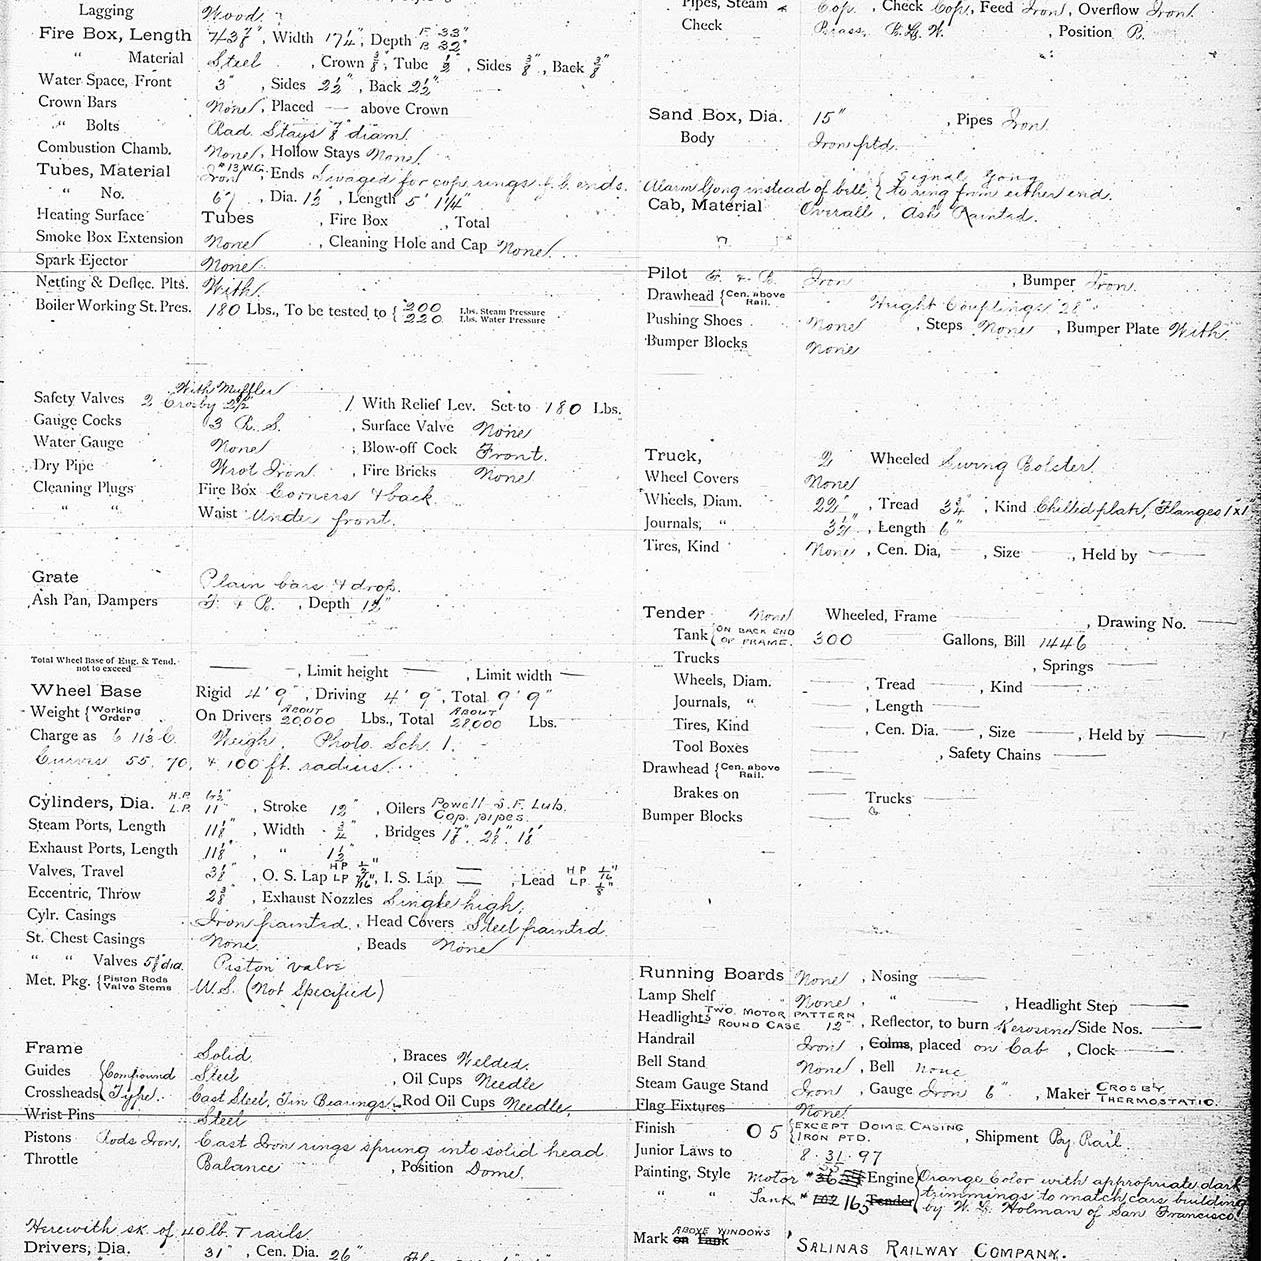 Lagging Wood.
Fire Box, Length 43⅞", Width 17¼", Depth F. 33" B. 32"
" Material Steel, Crown ⅜", Tube ½", Sides ⅜", Back ⅜"
Water Space, Front 3", Sides 2½", Back 2½"
Crown Bars None, Placed — above Crown
" Bolts Rad. Stays ⅞" diam.
Combustion Chamb. None, Hollow Stays None.
Tubes, Material Iron #13 W.G., Ends Swaged for cop. rings f. b. ends.
" No. 67, Dia. 1½", Length 5' 1¼"
Heating Surface Tubes , Fire Box , Total
Smoke Box Extension None, Cleaning Hole and Cap None.
Spark Ejector None.
Netting & Deflec. Plts. With.
Boiler Working St. Pres. 180 Lbs., To be tested to { 200 Lbs. Steam Pressure
220 Lbs. Water Pressure
With Muffler
Safety Valves 2 Crosby 2½" 1 With Relief Lev. Set to 180 Lbs.
Gauge Cocks 3 R. S. , Surface Valve None
Water Gauge None ; Blow-off Cock Front.
Dry Pipe Wrot Iron , Fire Bricks None
Cleaning Plugs Fire Box Corners & back.
" " Waist Under front.
Grate Plain bars & drop.
Ash Pan, Dampers F. & B. , Depth 12"
Total Wheel Base of Eng. & Tend. not to exceed — , Limit height — , Limit width —
Wheel Base Rigid 4' 9", Driving 4' 9", Total 9' 9"
Weight { Working Order On Drivers ABOUT 20,000 Lbs., Total ABOUT 28,000 Lbs.
Charge as 6 11⅓ C. Weigh. Photo. Sch. 1.
Curves 55, 70, & 100 ft. radius.
Cylinders, Dia. H.P. 6½" L.P. 11" , Stroke 12" , Oilers Powell S.F. Lub. Cop. pipes.
Steam Ports, Length 11⅛" , Width ¾" , Bridges 1⅞", 2⅛", 1⅛"
Exhaust Ports, Length 11⅛" , " 1½"
Valves, Travel 3½" , O. S. Lap HP ½" LP 7/16", I. S. Lap — , Lead HP 1/16" LP ⅛"
Eccentric, Throw 2⅜" , Exhaust Nozzles Single high.
Cylr. Casings Iron painted. , Head Covers Steel painted.
St. Chest Casings None. , Beads None
" " Valves 5⅛" dia. Piston valve
Met. Pkg. { Piston Rods Valve Stems U.S. (Not Specified)
Frame Solid , Braces Welded.
Guides { Compound Steel , Oil Cups Needle
Crossheads { Type. Cast Steel, Tin Bearings. Rod Oil Cups Needle.
Wrist Pins Steel
Pistons Rods Iron, Cast Iron rings sprung into solid head.
Throttle Balance , Position Dome.
Herewith sk. of 40 lb. T rails.
Drivers, Dia. 31" , Cen. Dia. 26"
Pipes, Steam Cop. , Check Cop., Feed Iron, Overflow Iron.
Check Brass, , Position B.
Sand Box, Dia. 15" , Pipes Iron
Body Iron ptd.
Alarm Gong instead of bell, { Signal Gong to ring from either end.
Cab, Material Overall, Ash Painted.
Pilot F. & B. Iron , Bumper Iron.
Drawhead { Cen. above Rail. Height Couplings 28"
Pushing Shoes None , Steps None , Bumper Plate With
Bumper Blocks None
Truck, 2 Wheeled Swing Bolster.
Wheel Covers None
Wheels, Diam. 22" , Tread 3¾" , Kind Chilled plate, Flanges 1"x1"
Journals, " 3½" , Length 6"
Tires, Kind None , Cen. Dia, — , Size — , Held by —
Tender None Wheeled, Frame , Drawing No. —
Tank { ON BACK END OF FRAME. 300 Gallons, Bill 1446
Trucks — , Springs —
Wheels, Diam. — , Tread — , Kind —
Journals, " — , Length —
Tires, Kind , Cen. Dia. — , Size — , Held by —
Tool Boxes — , Safety Chains —
Drawhead { Cen. above Rail. —
Brakes on — Trucks —
Bumper Blocks —
Running Boards None , Nosing —
Lamp Shelf None , " — , Headlight Step —
Headlights TWO MOTOR PATTERN ROUND CASE 12" , Reflector, to burn Kerosene Side Nos. —
Handrail Iron , Colms, placed on Cab , Clock —
Bell Stand None , Bell None
Steam Gauge Stand Iron , Gauge Iron 6" , Maker CROSBY THERMOSTATIC.
Flag Fixtures None
Finish O 5 { EXCEPT DOME CASING IRON PTD. , Shipment By Rail
Junior Laws to 8.31.97
Painting, Style Motor # Engine { Orange Color with appropriate dark
" " Tank # 102 165 Tender trimmings to match cars building
by W. L. Holman of San Francisco.
Mark on Tank ABOVE WINDOWS "SALINAS RAILWAY COMPANY.